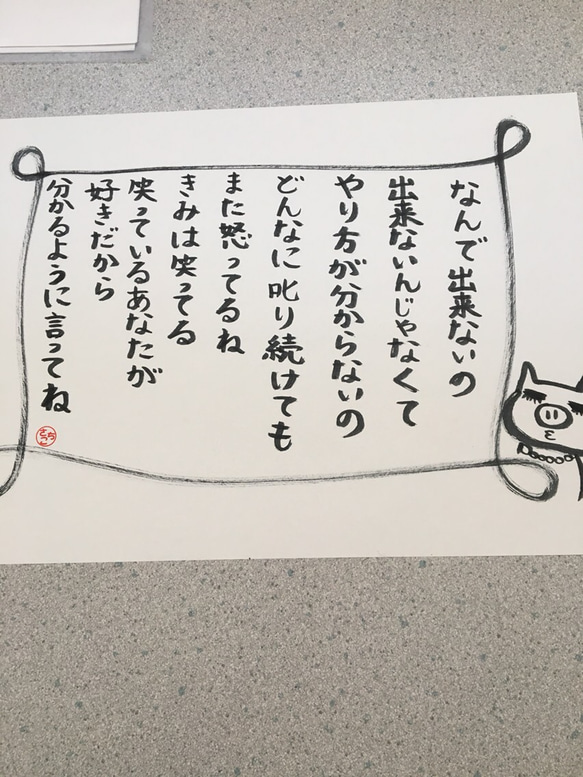 なんで出来ないの
出来ないんじゃなくて
やり方が分からないの
どんなに叱り続けても
また怒ってるね
きみは笑ってる
笑っているあなたが
好きだから
分かるように言ってね